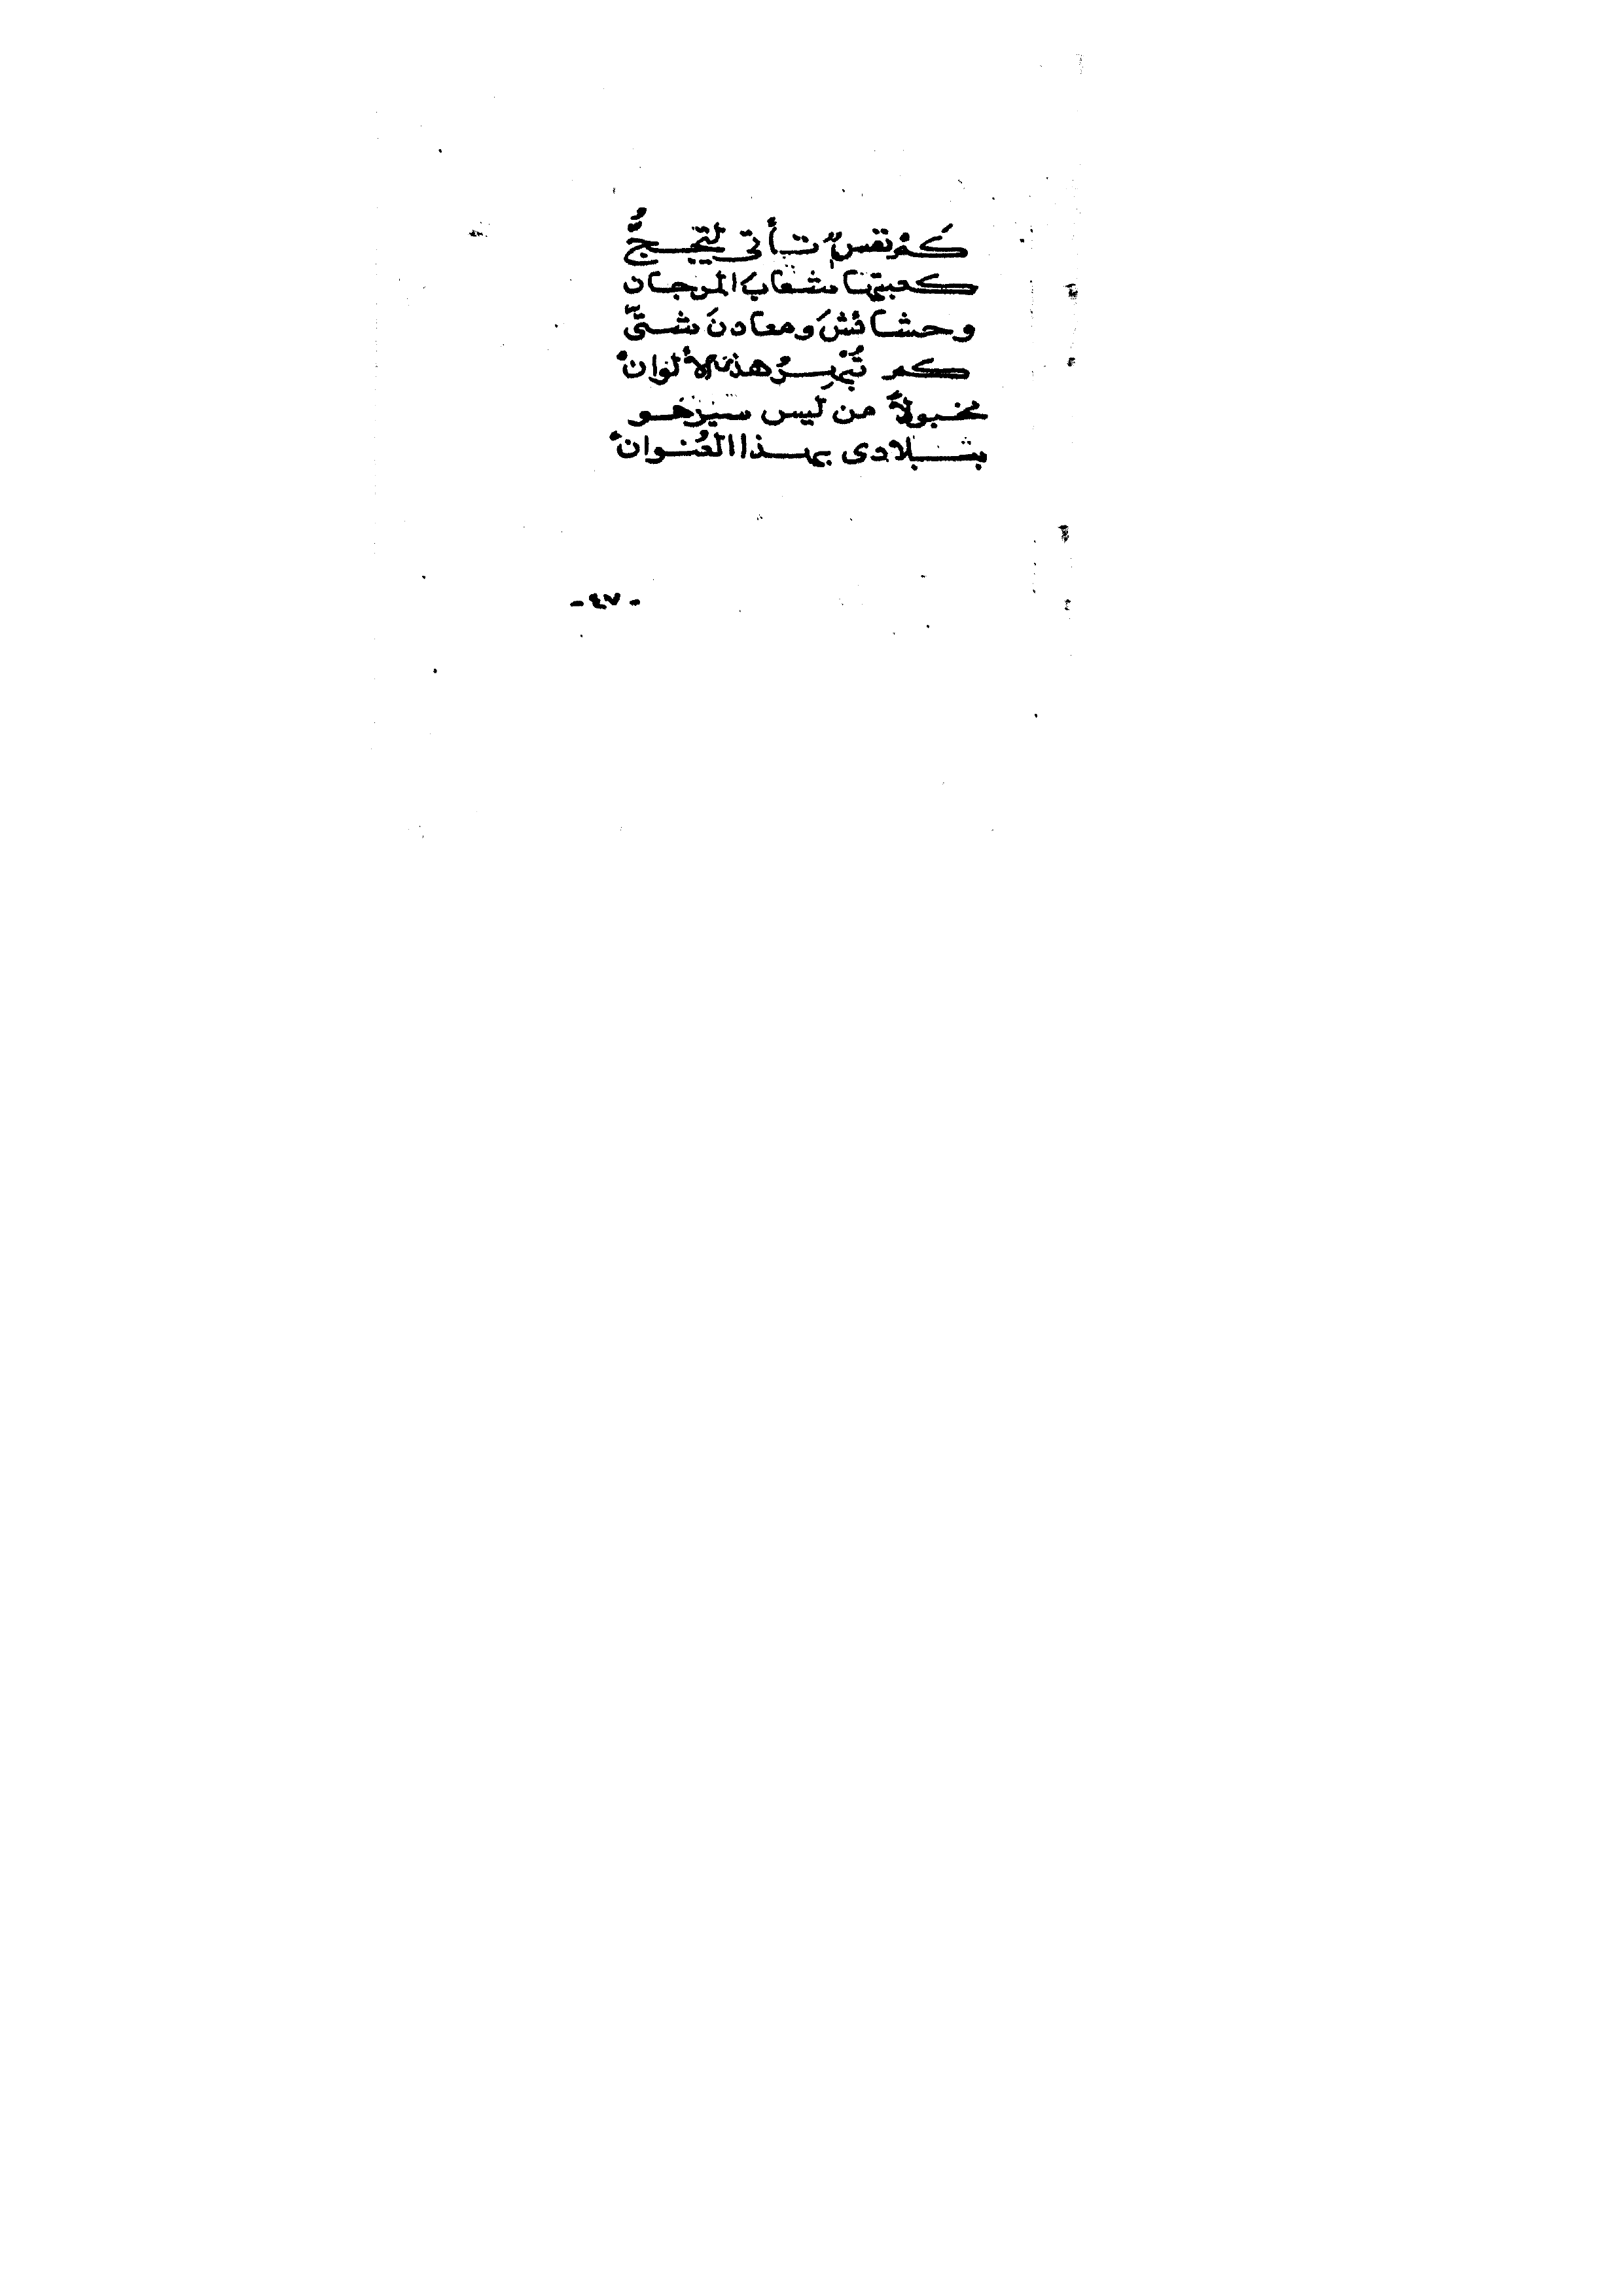 كَمْ نفسٌ تأتى لتحجُّ
كعبتها شعابَ المرجان
وحشائشَ ومعادنَ شتَّى
كم تُبْهِرُ هذى الألوانْ
مخبولاً من ليس سيزهو
ببلادى بهذا العُنوانْ
- ٤٧ -